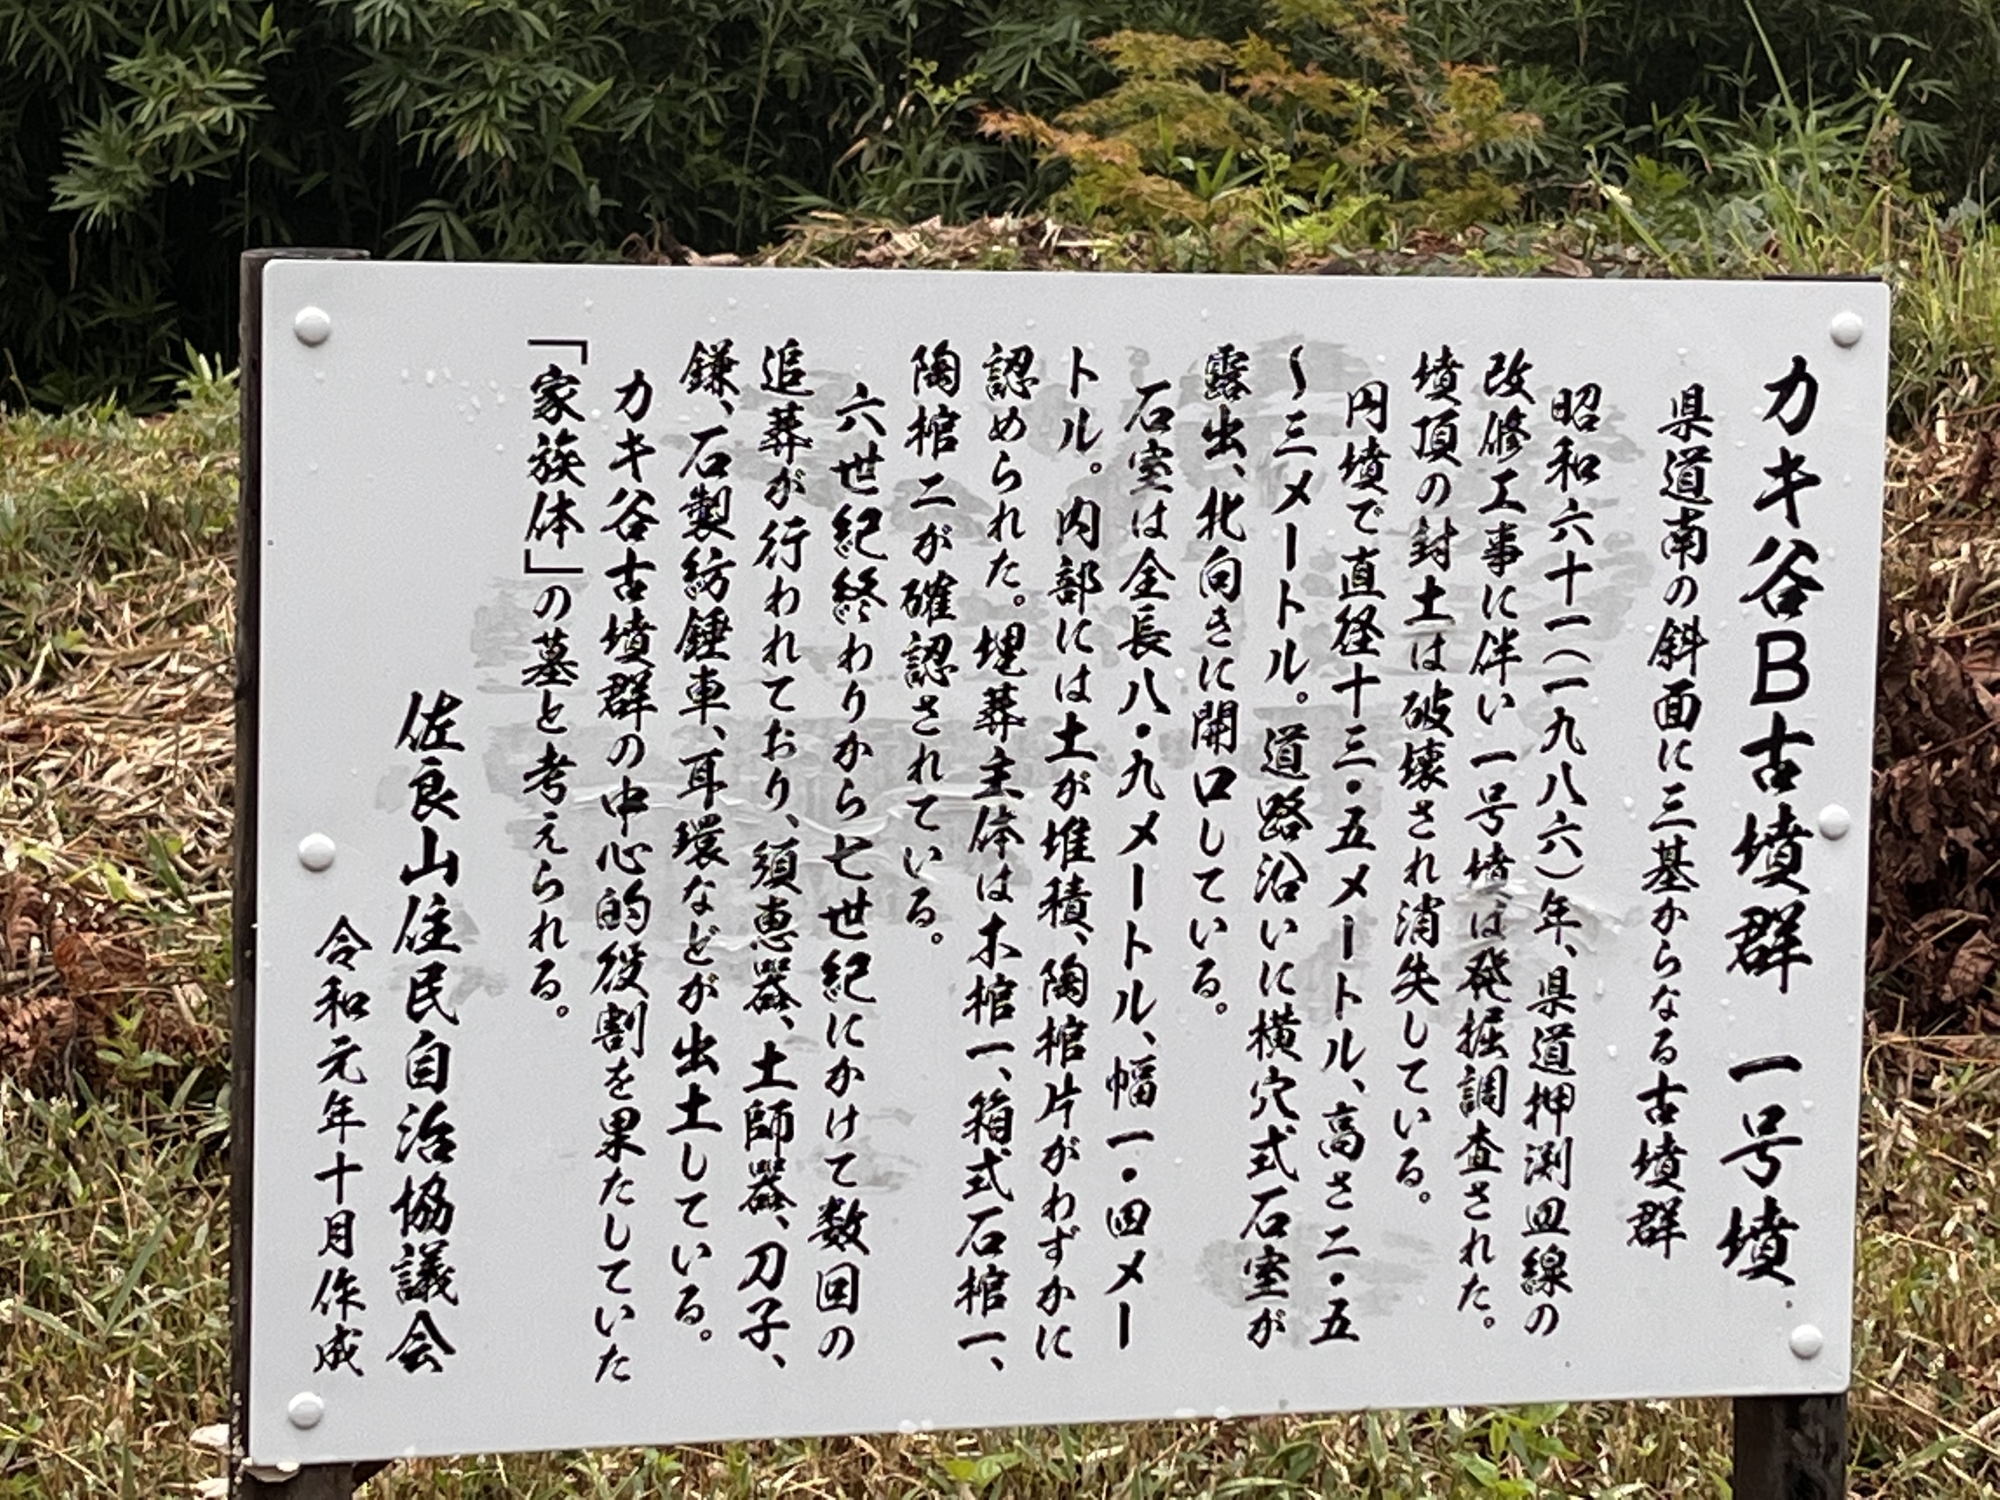 カキ谷B古墳群　一号墳
県道南の斜面に三基からなる古墳群
昭和六十一（一九八六）年、県道押渕皿線の
改修工事に伴い一号墳は発掘調査された。
墳頂の封土は破壊され消失している。
円墳で直径十三・五メートル、高さ二・五
〜三メートル。道路沿いに横穴式石室が
露出、北向きに開口している。
石室は全長八・九メートル、幅一・四メー
トル。内部には土が堆積、陶棺片がわずかに
認められた。埋葬主体は木棺一、箱式石棺一、
陶棺二が確認されている。
六世紀終わりから七世紀にかけて数回の
追葬が行われており、須恵器、土師器、刀子、
鎌、石製紡錘車、耳環などが出土している。
カキ谷古墳群の中心的役割を果たしていた
「家族体」の墓と考えられる。
佐良山住民自治協議会
令和元年十月作成